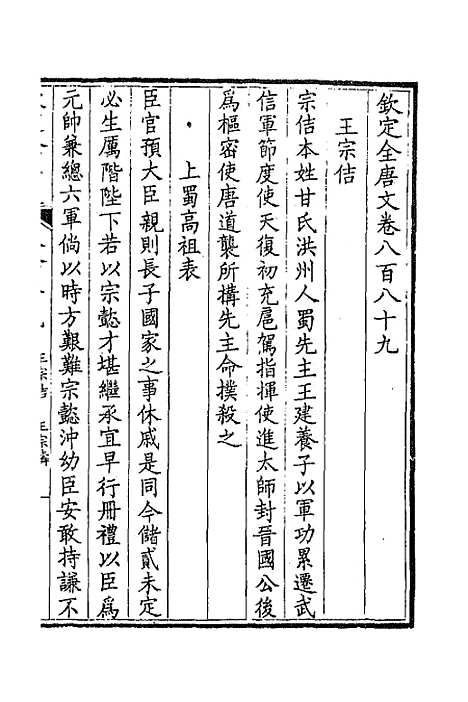 欽定全唐文卷八百八十九
王宗佶
宗佶本姓甘氏洪州人蜀先主王建養子以軍功累遷武
信軍節度使天復初充扈駕指揮使進太師封晉國公後
爲樞密使唐道襲所搆先主命撲殺之
上蜀高祖表
臣官預大臣親則長子國家之事休戚是同今儲貳未定
必生厲階陛下若以宗懿才堪繼承宜早行冊禮以臣爲
元帥兼總六軍倘以時方艱難宗懿沖幼臣安敢持謙不
王宗佶